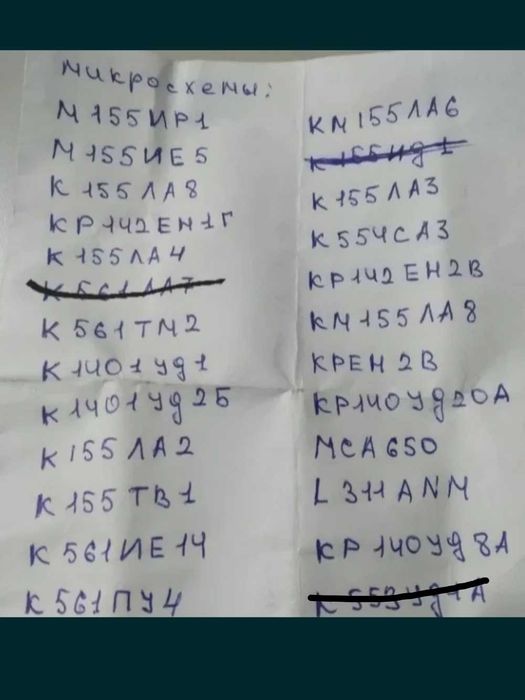 микросхемы:
М155ИР1
М155ИЕ5
К 155ЛА8
КР142ЕН1Г
К 155ЛА4
К 561ЛА7
К 561ТМ2
К1401Уд1
К1401Уд2Б
К 155ЛА2
К 155ТВ1
К 561ИЕ14
К 561ПУ4
КМ155ЛА6
К155Ид1
К155ЛА3
К554СА3
КР142ЕН2В
КМ155ЛА8
КРЕН2В
КР140Уд20А
МСА650
L311ANM
КР140Уд8А
К553Уд1А